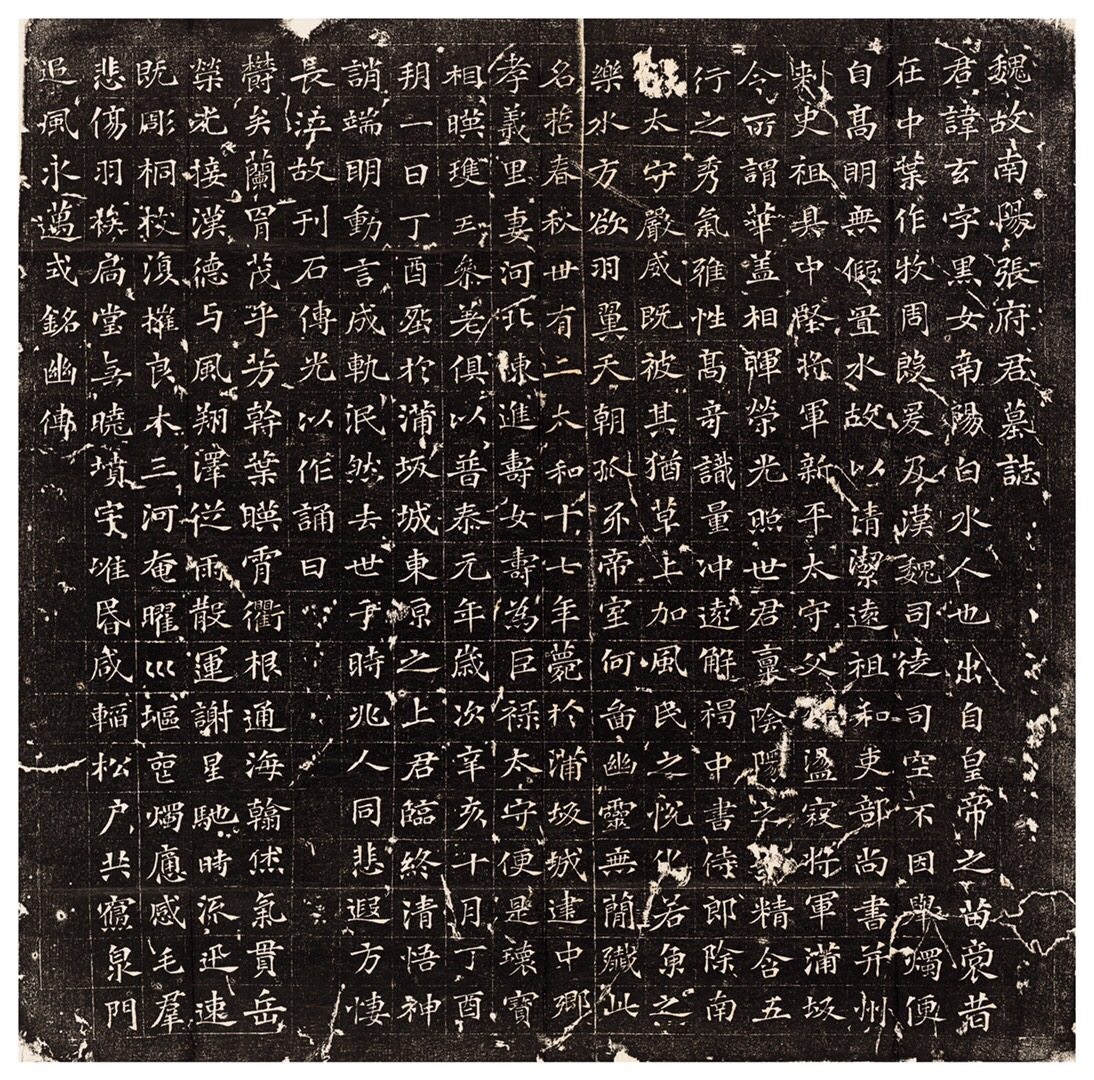 魏故南陽張府君墓誌
君諱玄字黑女南陽白水人也出自皇帝之苗裔昔
在中葉作牧周殷爰及漢魏司徒司空不因舉燭便
自高明無假置水故以清潔遠祖和吏部尚書并州
刾史祖具中堅將軍新平太守父盪寇將軍蒲坂
令所謂華蓋相暉榮光照世君稟陰陽之精含五
行之秀氣雅性高奇識量沖遠解褐中書侍郎除南
陽太守嚴威既被其猶草上加風民之悅化若魚之
樂水方欲羽翼天朝抓牙帝室何啚幽靈無簡殲此
名哲春秋世有二太和十七年薨於蒲坂城建中鄉
孝義里妻河北陳進壽女壽為巨祿太守便是瓌寶
相暎瓊玉參差俱以普泰元年歲次辛亥十月丁酉
朔一日丁酉塟於蒲坂城東原之上君臨終清悟神
誚端明動言成軌泯然去世于時兆人同悲遐方悽
長泣故刊石傳光以作誦曰
鬱矣蘭冑茂乎芳幹葉暎霄衢根通海翰休氣貫岳
榮光接漢德与風翔澤從雨散運謝星馳時流迅速
既彫桐枝復摧良木三河奄曜巛塸燭應感毛羣
悲傷羽族扃堂無曉墳宇唯昏咸輼松戶共寢泉門
追風永邁式銘幽傳